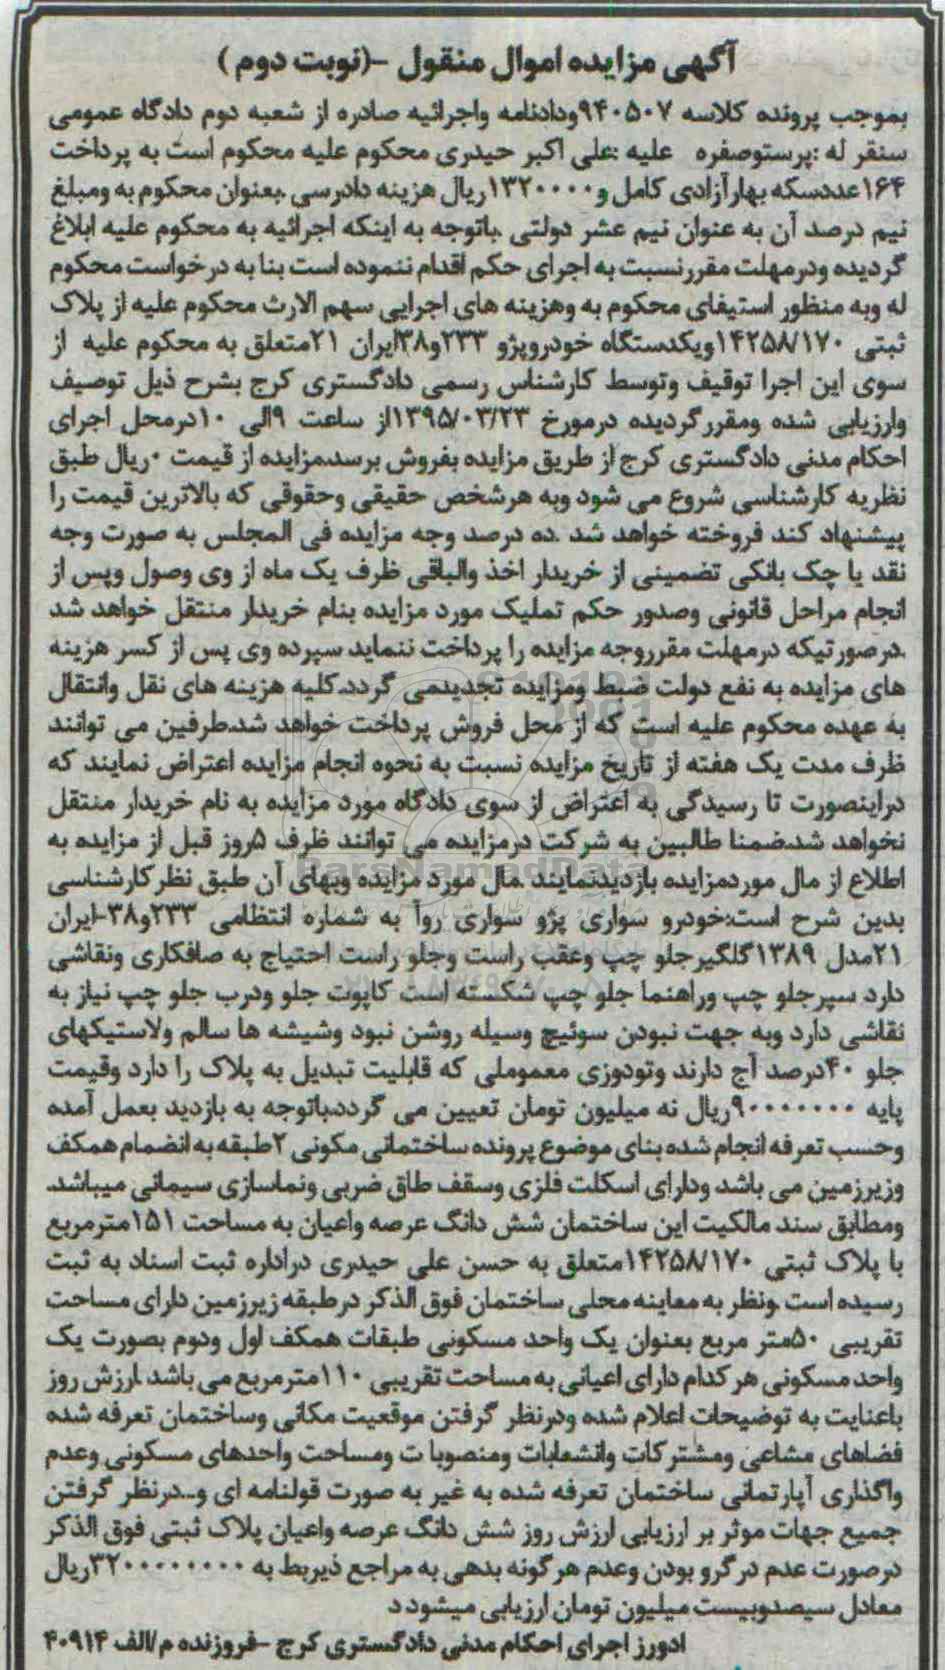 آگهی مزایده اموال منقول -(نوبت دوم )
بموجب پرونده کلاسه ۹۴۰۵۰۷ودادنامه واجرائیه صادره از شعبه دوم دادگاه عمومی
سنقر له :پرستوصفره علیه :علی اکبر حیدری محکوم علیه محکوم است به پرداخت
۱۶۴عددسکه بهارآزادی کامل و۱۳۲۰۰۰۰ریال هزینه دادرسی .بعنوان محکوم به ومبلغ
نیم درصد آن به عنوان نیم عشر دولتی .باتوجه به اینکه اجرائیه به محکوم علیه ابلاغ
گردیده ودرمهلت مقررنسبت به اجرای حکم اقدام ننموده است بنا به درخواست محکوم
له وبه منظور استیفای محکوم به وهزینه های اجرایی سهم الارث محکوم علیه از پلاک
ثبتی ۱۴۲۵۸/۱۷۰ویکدستگاه خودروپژو ۲۳۳و۳۸ایران ۲۱متعلق به محکوم علیه از
سوی این اجرا توقیف وتوسط کارشناس رسمی دادگستری کرج بشرح ذیل توصیف
وارزیابی شده ومقررگردیده درمورخ ۱۳۹۵/۰۳/۲۳از ساعت ۹الی ۱۰درمحل اجرای
احکام مدنی دادگستری کرج از طریق مزایده بفروش برسد.مزایده از قیمت ۰ریال طبق
نظریه کارشناسی شروع می شود وبه هرشخص حقیقی وحقوقی که بالاترین قیمت را
پیشنهاد کند فروخته خواهد شد .ده درصد وجه مزایده فی المجلس به صورت وجه
نقد یا چک بانکی تضمینی از خریدار اخذ والباقی ظرف یک ماه از وی وصول وپس از
انجام مراحل قانونی وصدور حکم تملیک مورد مزایده بنام خریدار منتقل خواهد شد
.درصورتیکه درمهلت مقرروجه مزایده را پرداخت ننماید سپرده وی پس از کسر هزینه
های مزایده به نفع دولت ضبط ومزایده تجدیدمی گردد.کلیه هزینه های نقل وانتقال
به عهده محکوم علیه است که از محل فروش پرداخت خواهد شد.طرفین می توانند
ظرف مدت یک هفته از تاریخ مزایده نسبت به نحوه انجام مزایده اعتراض نمایند که
دراینصورت تا رسیدگی به اعتراض از سوی دادگاه مورد مزایده به نام خریدار منتقل
نخواهد شد.ضمنا طالبین به شرکت درمزایده می توانند ظرف ۵روز قبل از مزایده به
اطلاع از مال موردمزایده بازدیدنمایند .مال مورد مزایده وبهای آن طبق نظرکارشناسی
بدین شرح است:خودرو سواری پژو سواری روآ به شماره انتظامی ۲۳۳و۳۸-ایران
۲۱مدل ۱۳۸۹گلگیرجلو چپ وعقب راست وجلو راست احتیاج به صافکاری ونقاشی
دارد سپرجلو چپ وراهنما جلو چپ شکسته است کاپوت جلو ودرب جلو چپ نیاز به
نقاشی دارد وبه جهت نبودن سوئیچ وسیله روشن نبود وشیشه ها سالم ولاستیکهای
جلو ۴۰درصد آج دارند وتودوزی معموملی که قابلیت تبدیل به پلاک را دارد وقیمت
پایه ۹۰۰۰۰۰۰۰ریال نه میلیون تومان تعیین می گردد.باتوجه به بازدید بعمل آمده
وحسب تعرفه انجام شده بنای موضوع پرونده ساختمانی مکونی ۲طبقه به انضمام همکف
وزیرزمین می باشد ودارای اسکلت فلزی وسقف طاق ضربی ونماسازی سیمانی میباشد.
ومطابق سند مالکیت این ساختمان شش دانگ عرصه واعیان به مساحت ۱۵۱مترمربع
با پلاک ثبتی ۱۴۲۵۸/۱۷۰متعلق به حسن علی حیدری دراداره ثبت اسناد به ثبت
رسیده است .ونظر به معاینه محلی ساختمان فوق الذکر درطبقه زیرزمین دارای مساحت
تقریبی ۵۰متر مربع بعنوان یک واحد مسکونی طبقات همکف اول ودوم بصورت یک
واحد مسکونی هر کدام دارای اعیانی به مساحت تقریبی ۱۱۰مترمربع می باشد .ارزش روز
باعنایت به توضیحات اعلام شده ودرنظر گرفتن موقعیت مکانی وساختمان تعرفه شده
فضاهای مشاعی ومشترکات وانشعابات ومنصوبا ت ومساحت واحدهای مسکونی وعدم
واگذاری آپارتمانی ساختمان تعرفه شده به غیر به صورت قولنامه ای و...درنظر گرفتن
جمیع جهات موثر بر ارزیابی ارزش روز شش دانگ عرصه واعیان پلاک ثبتی فوق الذکر
درصورت عدم در گرو بودن وعدم هرگونه بدهی به مراجع ذیربط به ۳۲۰۰۰۰۰۰۰۰ریال
معادل سیصدوبیست میلیون تومان ارزیابی میشود د
ادورز اجرای احکام مدنی دادگستری کرج -فروزنده م/الف ۴۰۹۱۴
ParsNamadData